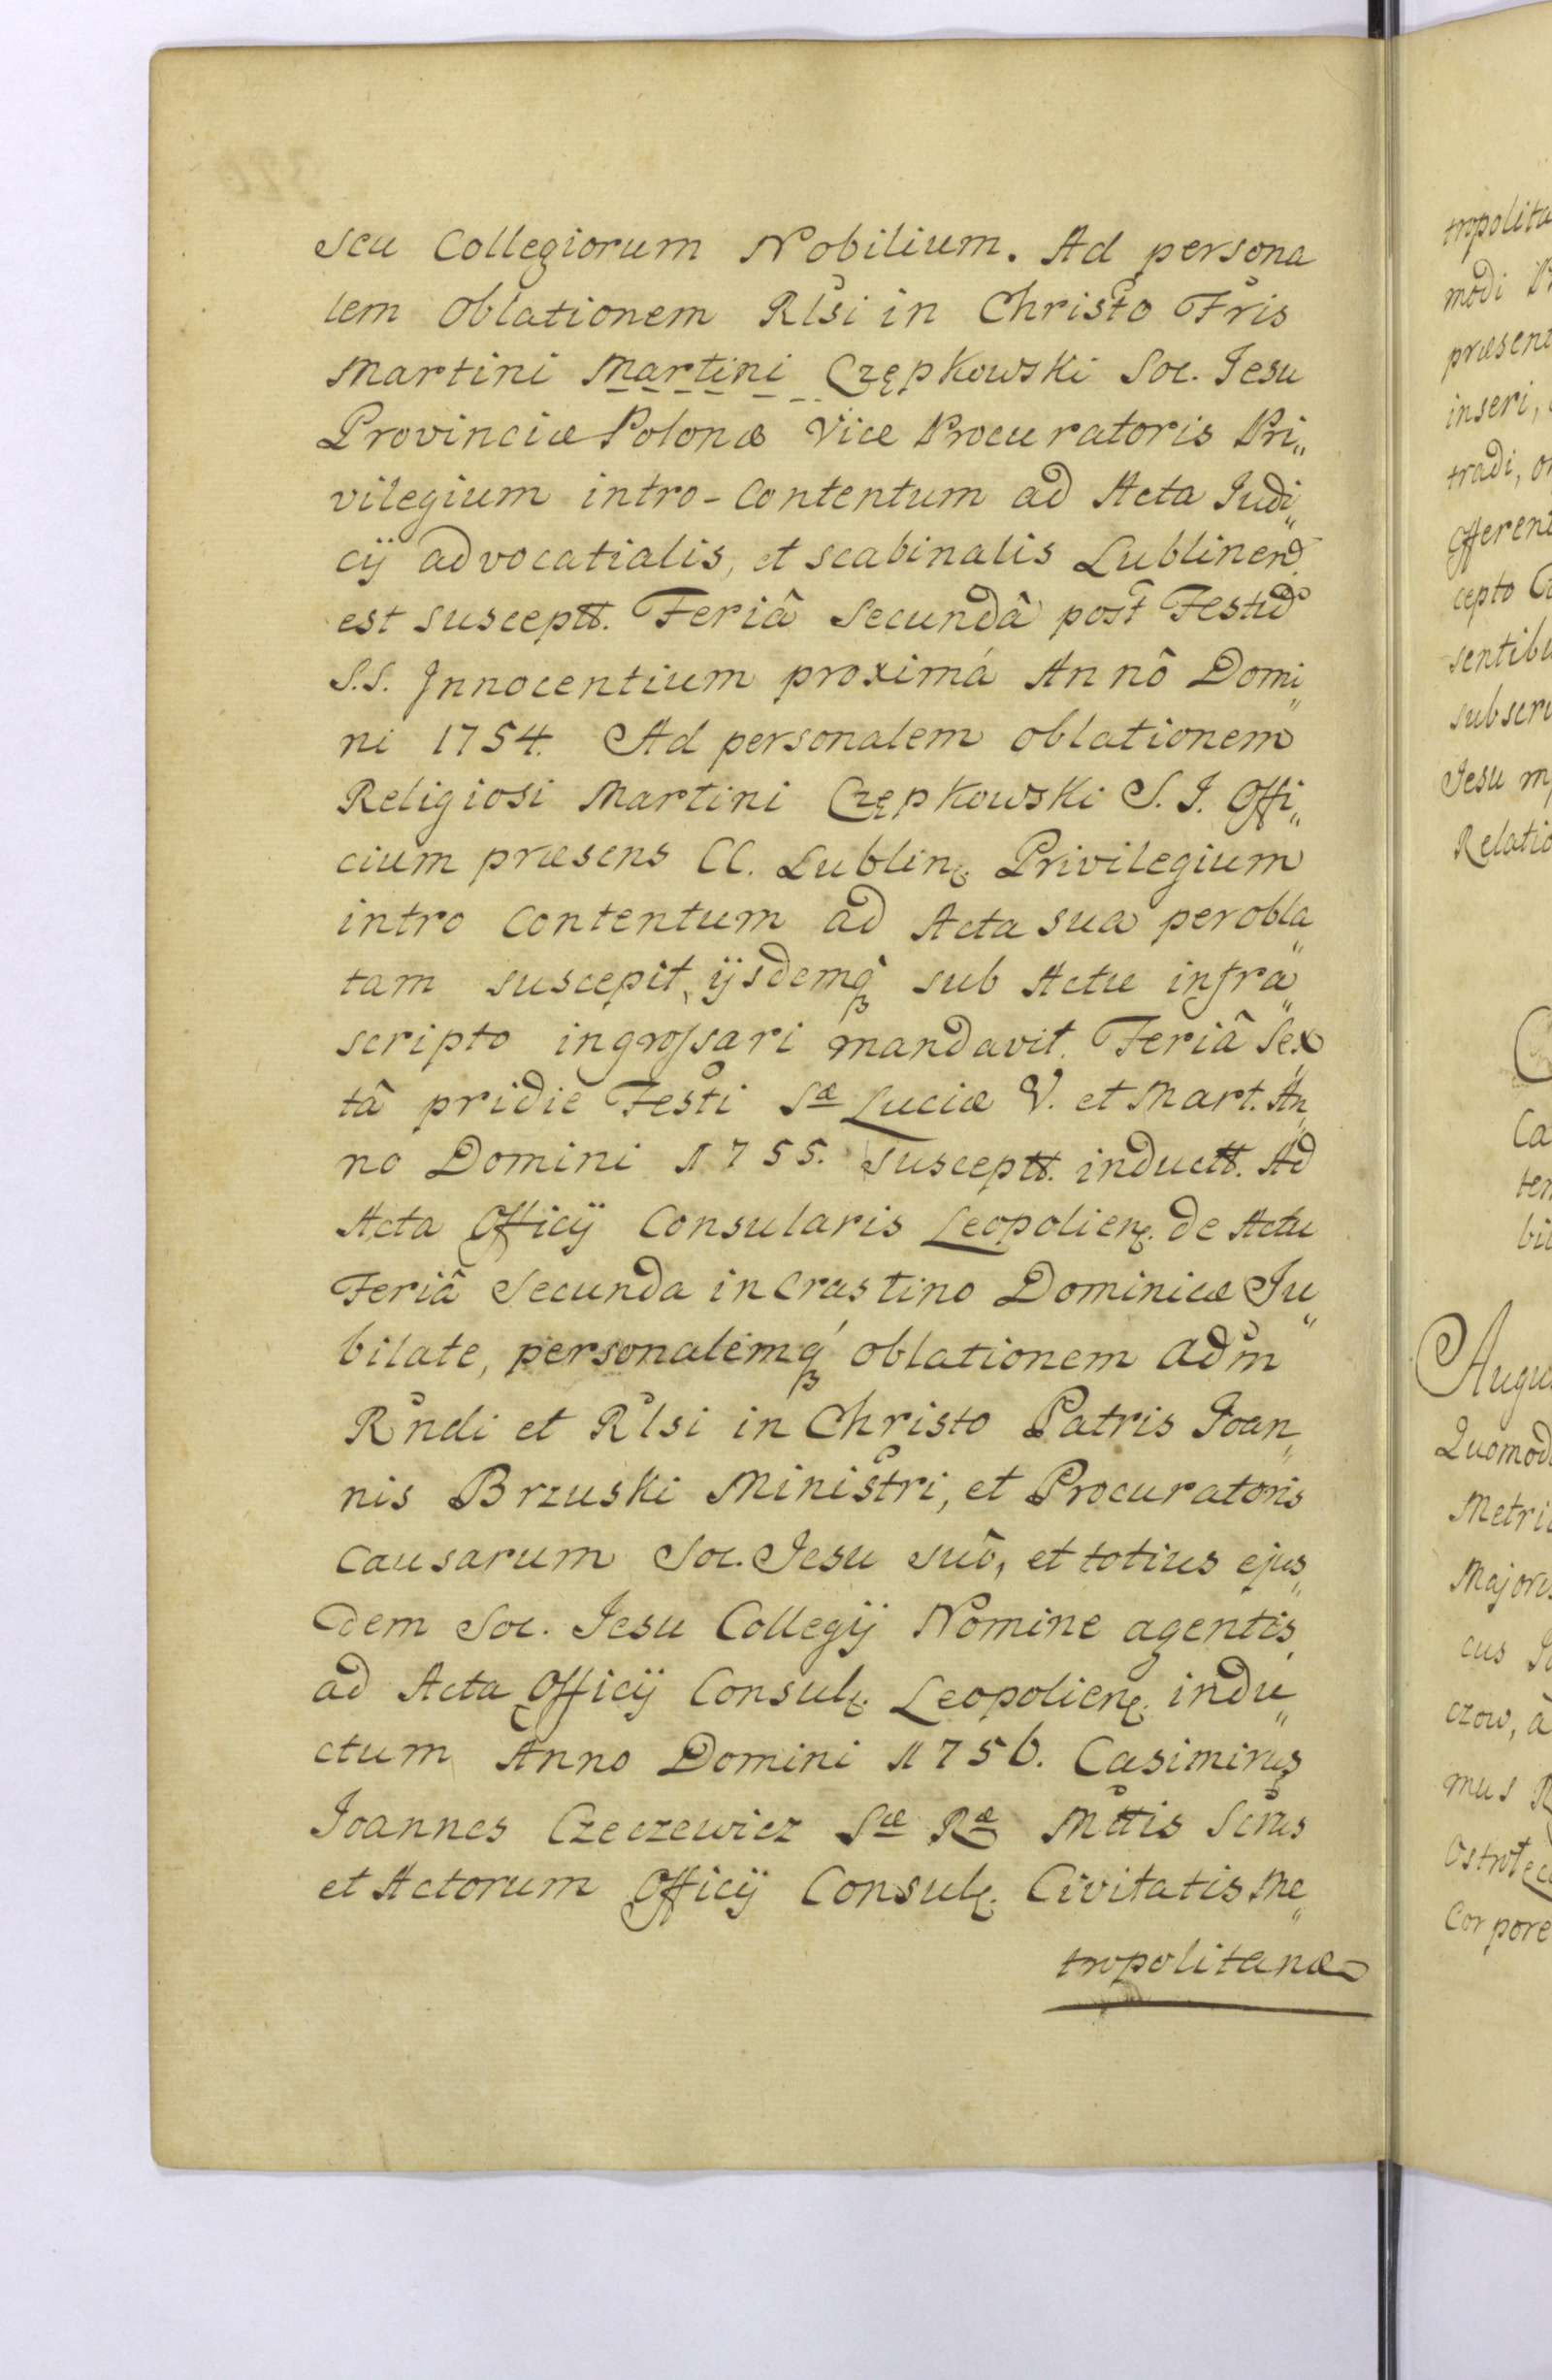 seu Collegiorum Nobilium. Ad persona
lem Oblationem Rlsi in Christo Fris
Martini Martini Czępkowski Soc. Jesu
Provinciæ Polonæ Vice Procuratoris Pri„
vilegium intro-Contentum ad Acta Judi„
cÿ advocatialis, et scabinalis Lublinen
est susceptt. Feriâ Secundâ post Festũ
S.S. Innocentium proximá Annô Domi„
ni 1754. Ad personalem oblationem
Religiosi Martini Czępkowski S. J. Offi„
cium præsens CC. Lublin. Privilegium
intro Contentum ad Acta sua perobla„
tam suscepit, ÿsdemq́ sub Actu infra„
scripto ingrossari mandavit. Feriâ Sex„
tâ pridie Festi Sæ Luciæ V. et Mart. An„
no Domini 1755. Susceptt. inductt. Ad
Acta Officÿ Consularis Leopolien. de Actu
Feriâ Secunda in Crastino Dominicæ Ju„
bilate, personalemq́ oblationem adm
Rndi et Rlsi in Christo Patris Joan„
nis Brzuski Ministri, et Procuratoris
Causarum Soc. Jesu suô, et totius ejus„
dem Soc. Jesu Collegÿ Nomine agentis,
ad Acta Officÿ Consul. Leopolien. indu„
ctum Anno Domini 1756. Casimirus
Joannes Czeczewicz Sæ Ræ Mttis Scrius
et Actorum Officÿ Consul. Civitatis Me„
tropolitanæ
tropolita
modi
præsent
inseri,
tradi,
Offerent
cepto
sentibu
subscri
Jesu
Relatio
Ca
ter
bil
Augu
Quomod
Metri
Majoris
cus
czow, a
mus R
Ostro
Corpore